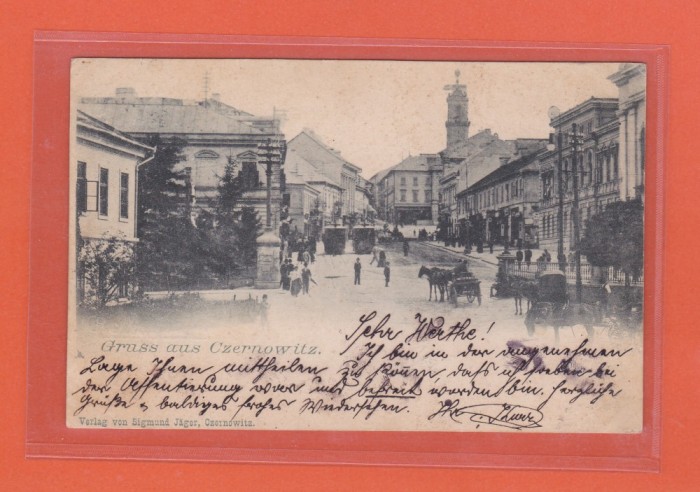 Gruss aus Czernowitz.
Sehr Werthe!
Ich bin in der angenehmen
Lage Ihnen mittheilen zu können, dass ich soeben bei
der Assentierung war und befreit worden bin. Herzliche
Grüße & baldiges frohes Wiedersehen. Ihr
Verlag von Sigmund Jäger, Czernowitz.